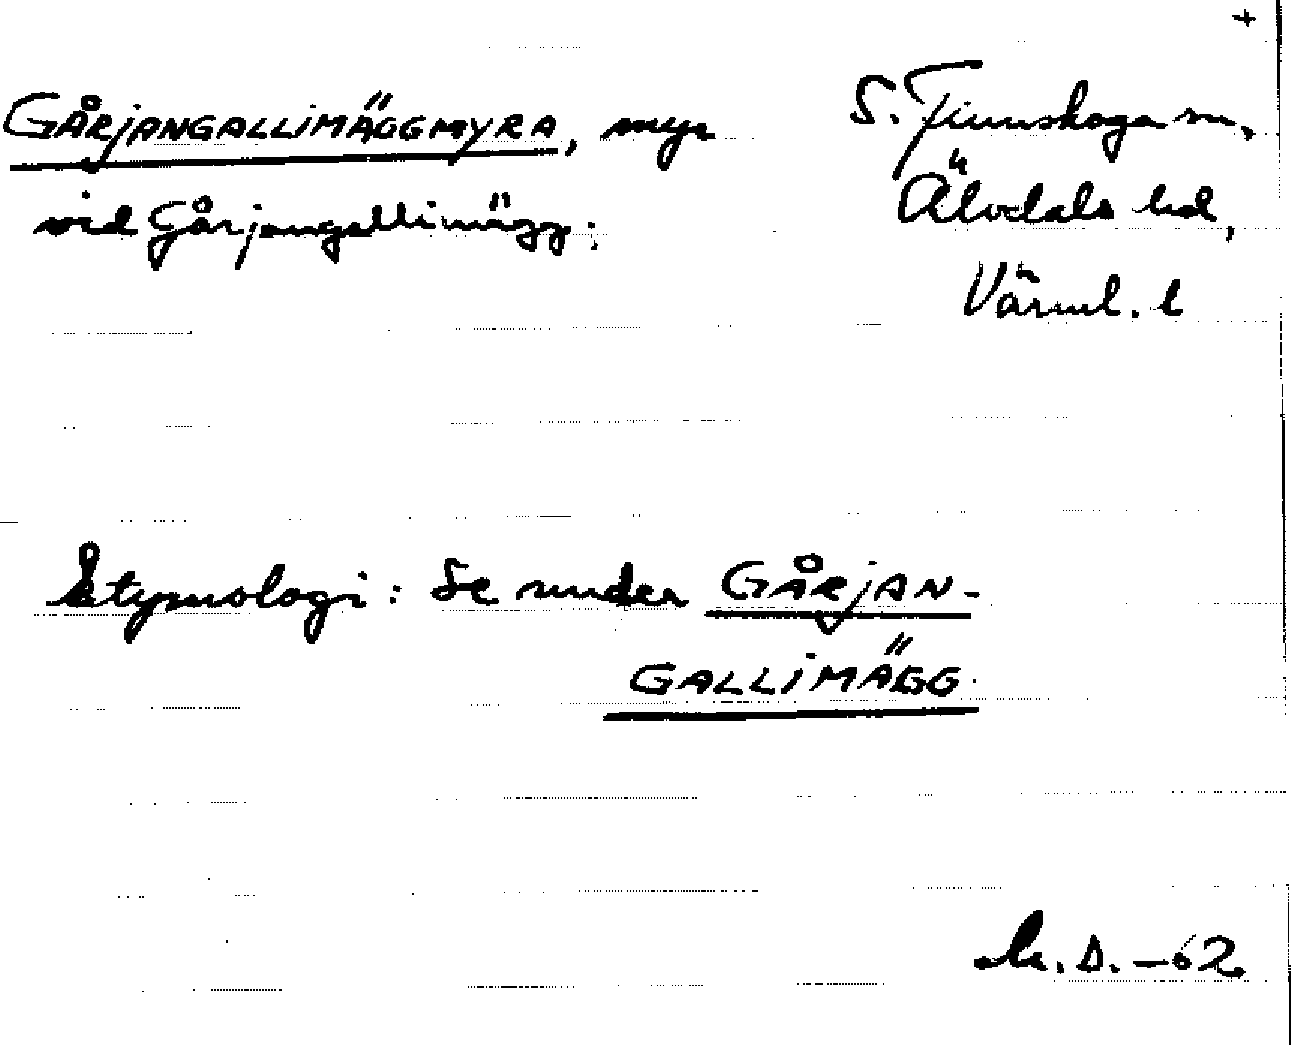 +
GÅRJANGALLIMÄGGMYRA, myr
S. Finnskoga sn,
vid Gårjangallimägg.
Älvdals hd,
Värml. l
Etymologi: Se under GÅRJAN-
GALLIMÄGG.
D. -62